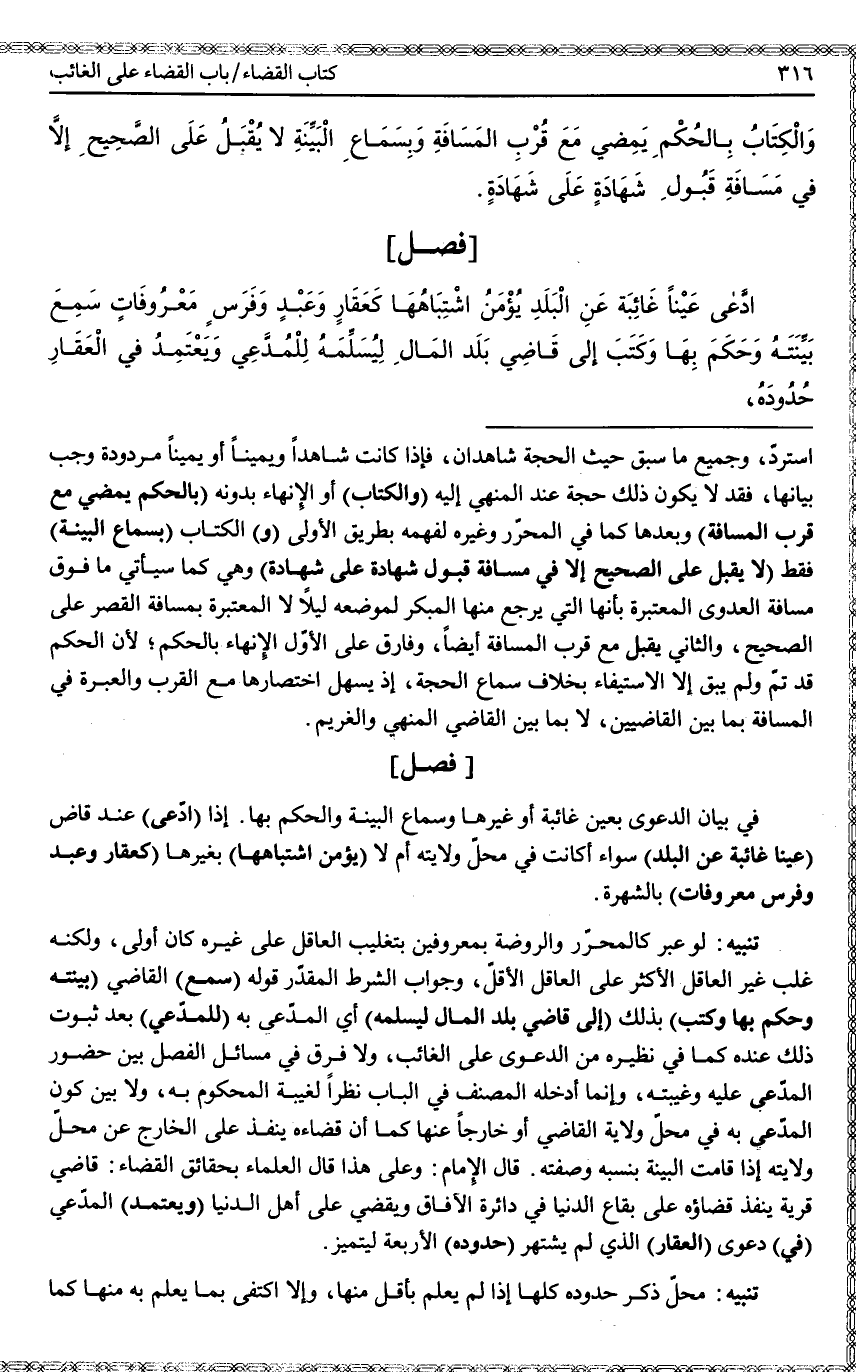 ٣١٦ كتاب القضاء/ باب القضاء على الغائب
وَالْكِتَابُ بِالحُكْمِ يَمضِي مَعَ قُرْبِ المَسَافَةِ وَبِسَمَاعِ الْبَيِّنَةِ لا يُقْبَلُ عَلَى الصَّحِيحِ إلَّا
في مَسَافَةِ قَبُولِ شَهَادَةٍ عَلَى شَهَادَةٍ.
[فصل]
ادَّعٰى عَيْناً غَائِبَة عَنِ الْبَلَدِ يُؤْمَنُ اشْتِبَاهُهَا كَعَقَارٍ وَعَبْدٍ وَفَرَسٍ مَعْرُوفَاتٍ سَمِعَ
بَيِّنَتَهُ وَحَكَمَ بِهَا وَكَتَبَ إلى قَاضِي بَلَد المَالِ لِيُسَلِّمَهُ لِلْمُدَّعِي وَيَعْتَمِدُ في الْعَقَارِ
حُدُودَهُ،
استردّ، وجميع ما سبق حيث الحجة شاهدان، فإذا كانت شاهداً ويميناً أو يميناً مردودة وجب
بيانها، فقد لا يكون ذلك حجة عند المنهي إليه (والكتاب) أو الإنهاء بدونه (بالحكم يمضي مع
قرب المسافة) وبعدها كما في المحرّر وغيره لفهمه بطريق الأولى (و) الكتاب (بسماع البينة)
فقط (لا يقبل على الصحيح إلا في مسافة قبول شهادة على شهادة) وهي كما سيأتي ما فوق
مسافة العدوى المعتبرة بأنها التي يرجع منها المبكر لموضعه ليلاً لا المعتبرة بمسافة القصر على
الصحيح، والثاني يقبل مع قرب المسافة أيضاً، وفارق على الأوّل الإنهاء بالحكم؛ لأن الحكم
قد تمّ ولم يبق إلا الاستيفاء بخلاف سماع الحجة، إذ يسهل اختصارها مع القرب والعبرة في
المسافة بما بين القاضيين، لا بما بين القاضي المنهي والغريم.
[ فصل]
في بيان الدعوى بعين غائبة أو غيرها وسماع البينة والحكم بها. إذا (ادّعى) عند قاض
(عينا غائبة عن البلد) سواء أكانت في محلّ ولايته أم لا (يؤمن اشتباهها) بغيرها (كعقار وعبد
وفرس معروفات) بالشهرة.
تنبيه: لو عبر كالمحرّر والروضة بمعروفين بتغليب العاقل على غيره كان أولى، ولكنه
غلب غير العاقل الأكثر على العاقل الأقلّ، وجواب الشرط المقدّر قوله (سمع) القاضي (بينته
وحكم بها وكتب) بذلك (إلى قاضي بلد المال ليسلمه) أي المدّعي به (للمدّعي) بعد ثبوت
ذلك عنده كما في نظيره من الدعوى على الغائب، ولا فرق في مسائل الفصل بين حضور
المدّعي عليه وغيبته، وإنما أدخله المصنف في الباب نظراً لغيبة المحكوم به، ولا بين كون
المدّعي به في محلّ ولاية القاضي أو خارجاً عنها كما أن قضاءه ينفذ على الخارج عن محلّ
ولايته إذا قامت البينة بنسبه وصفته. قال الإمام: وعلى هذا قال العلماء بحقائق القضاء: قاضي
قرية ينفذ قضاؤه على بقاع الدنيا في دائرة الآفاق ويقضي على أهل الدنيا (ويعتمد) المدّعي
(في) دعوى (العقار) الذي لم يشتهر (حدوده) الأربعة ليتميز.
تنبيه: محلّ ذكر حدوده كلها إذا لم يعلم بأقل منها، وإلا اكتفى بما يعلم به منها كما